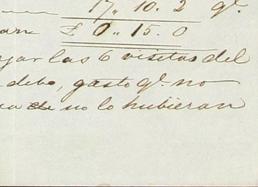 17.. 10. 2 qs.
£ 0.. 15. 0
las 6 visitas del
debo, gasto qe. no
no lo hubieran